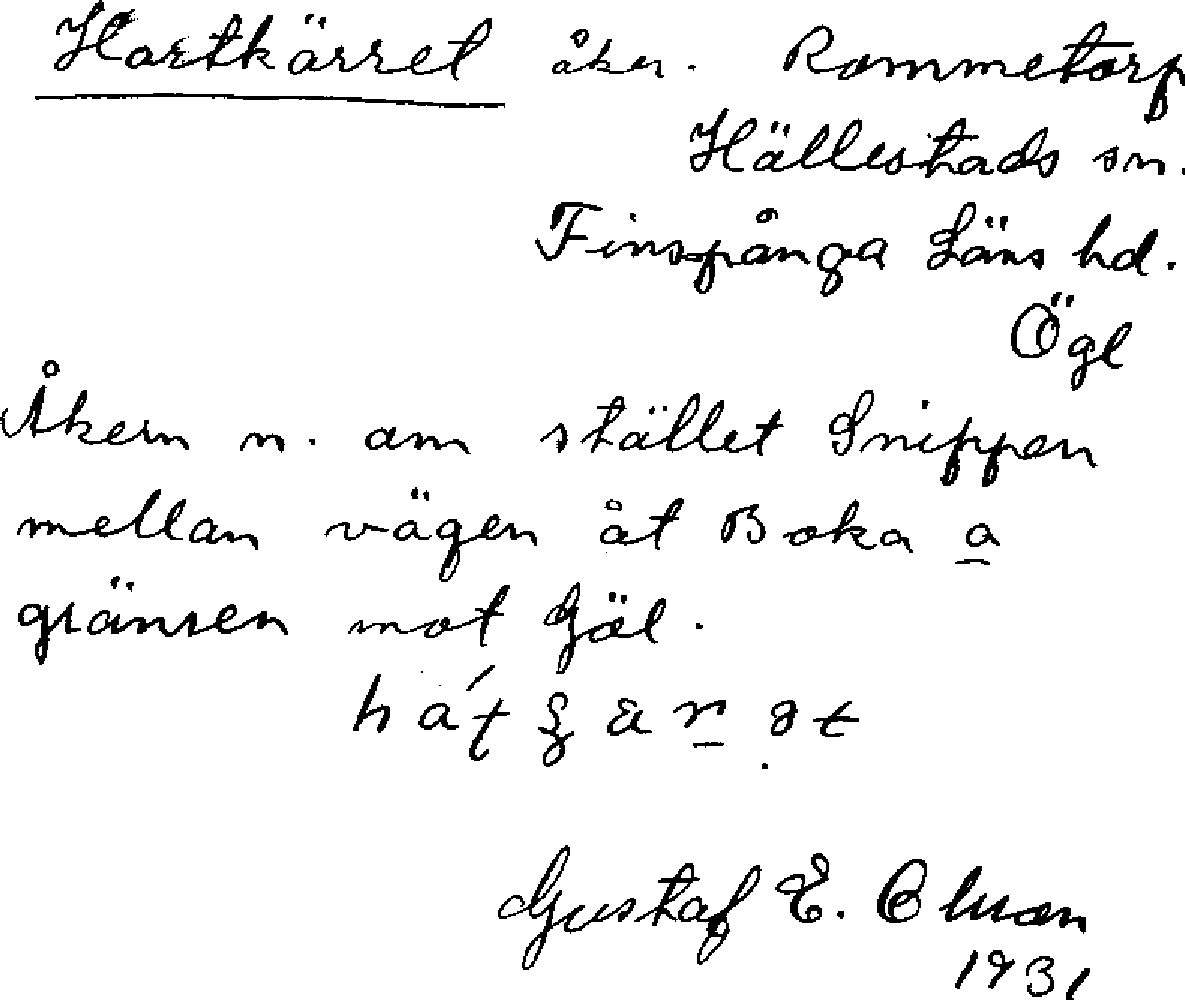 Hartkärret åker. Rammetorp
Hällestads sn.
Finspånga Läns hd.
Ögl
Åkern n. om stället Snippen
mellan vägen åt Boka a
gränsen mot Gäl.
Gustaf E. Olsson
1931